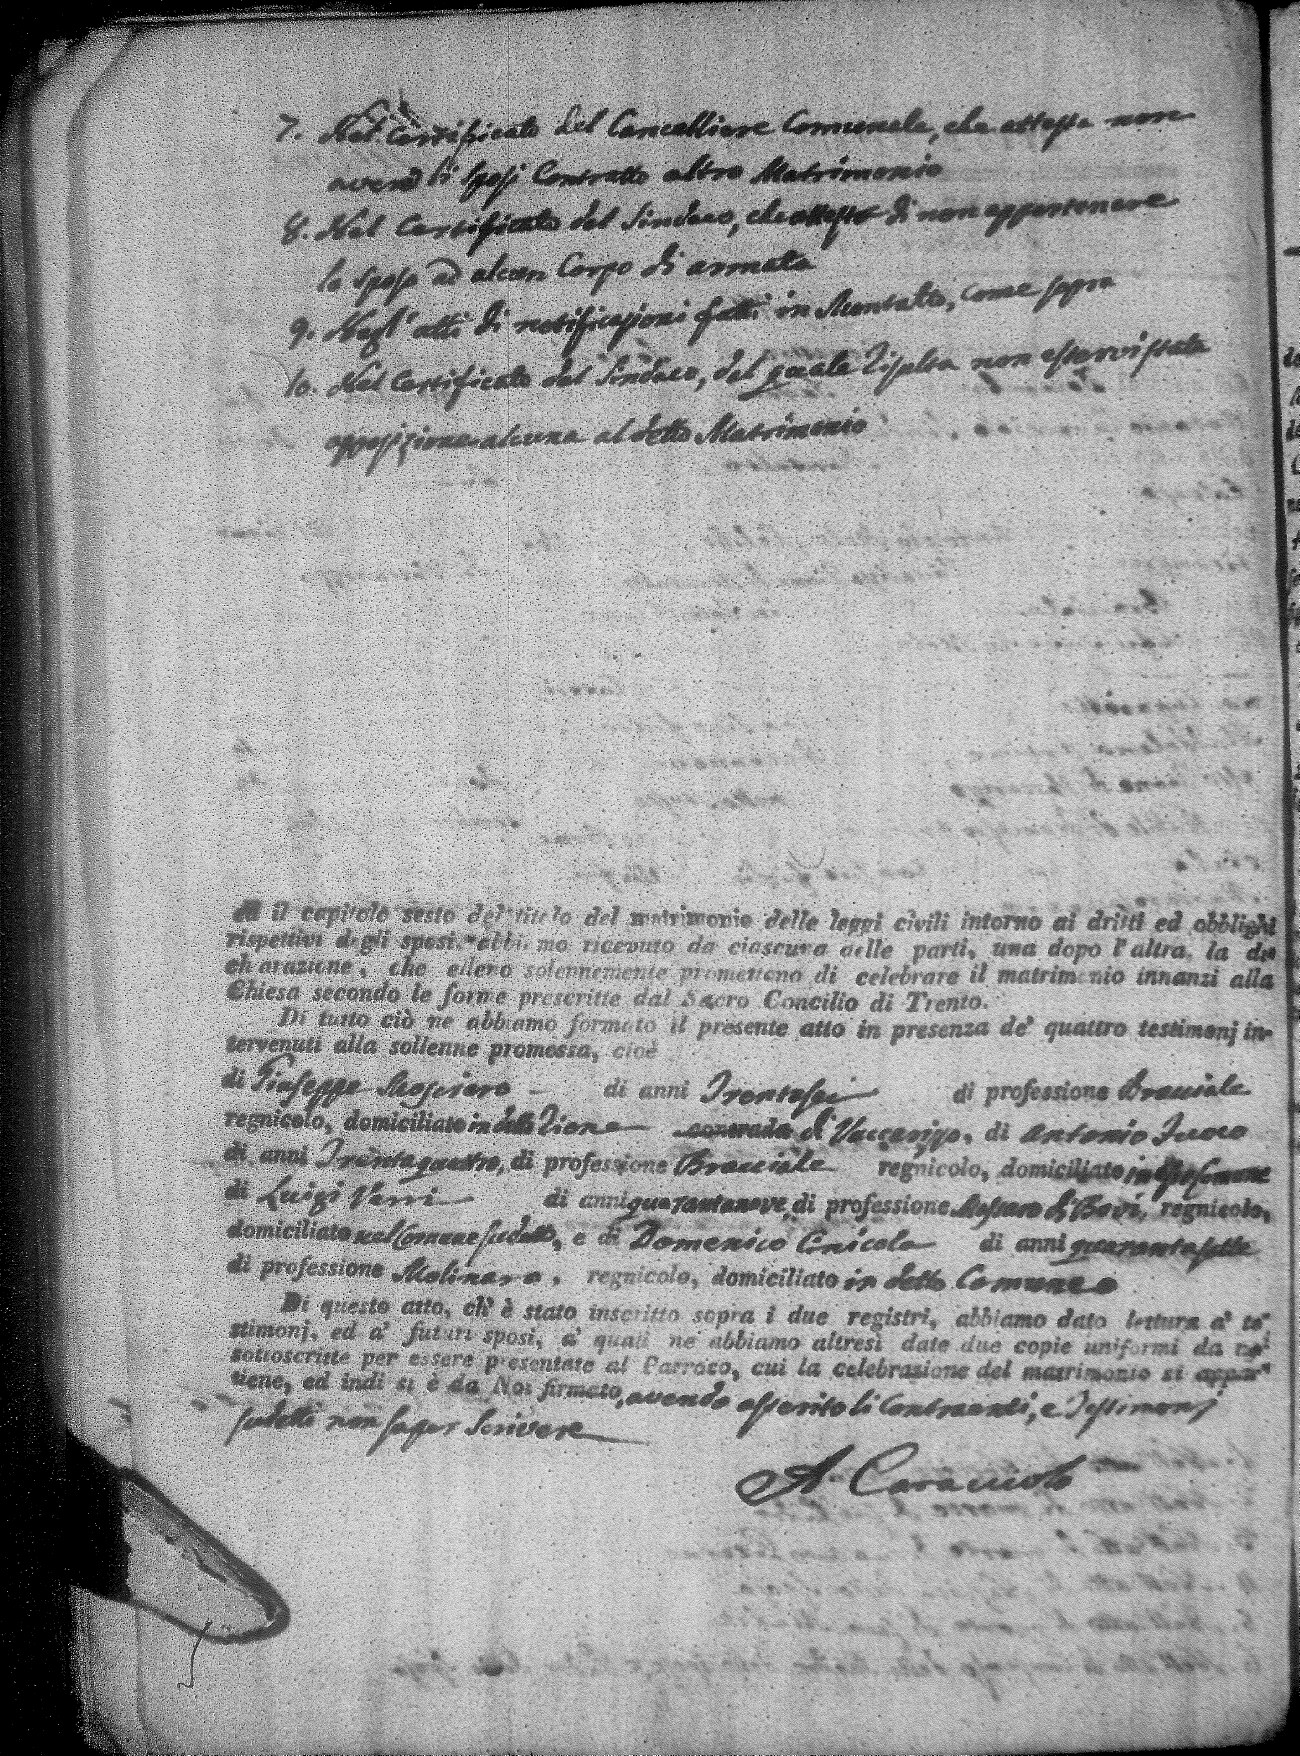 7. Nel Certificato del Cancelliere Comunale, che attesta non
avere li Sposi Contratto altro Matrimonio
8. Nel Certificato del Sindaco, che attesta di non appartenere
lo sposo ad alcun Corpo di armata
9. Negl' atti di notificazioni fatti in Montalto, come sopra
10. Nel Certificato del Sindaco, del quale risulta non esservi stata
opposizione alcuna al detto Matrimonio
il capitolo sesto del titolo del matrimonio delle leggi civili intorno ai dritti ed obblighi
rispettivi degli sposi. abbiamo ricevuto da ciascuna delle parti, una dopo l'altra, la di
chiarazione, che elleno solennemente promettono di celebrare il matrimonio innanzi alla
Chiesa secondo le forme prescritte dal Sacro Concilio di Trento.
Di tutto ciò ne abbiamo formato il presente atto in presenza de' quattro testimonj in-
tervenuti alla sollenne promessa, cioè
di Giuseppe di anni Trentasei di professione Bracciale
regnicolo, domiciliato in detta contrada di Vaccarizzo, di Antonio
di anni Trentaquattro, di professione Bracciale regnicolo, domiciliato in esso Comune
di Luigi di anni quarantanove, di professione di Bovi, regnicolo,
domiciliato nel Comune sudetto, e di Domenico Cinicola di anni quarantasette
di professione Molinaro, regnicolo, domiciliato in detto Comune
Di questo atto, ch' è stato inscritto sopra i due registri, abbiamo dato lettura a' te-
stimonj, ed a' futuri sposi, a' quali ne abbiamo altresì date due copie uniformi da noi
sottoscritte per essere presentate al Parroco, cui la celebrazione del matrimonio si appar-
tiene, ed indi si è da Noi firmato, avendo asserito li Contraenti, e Testimonj
sudetti non saper Scrivere
A. Caracciolo